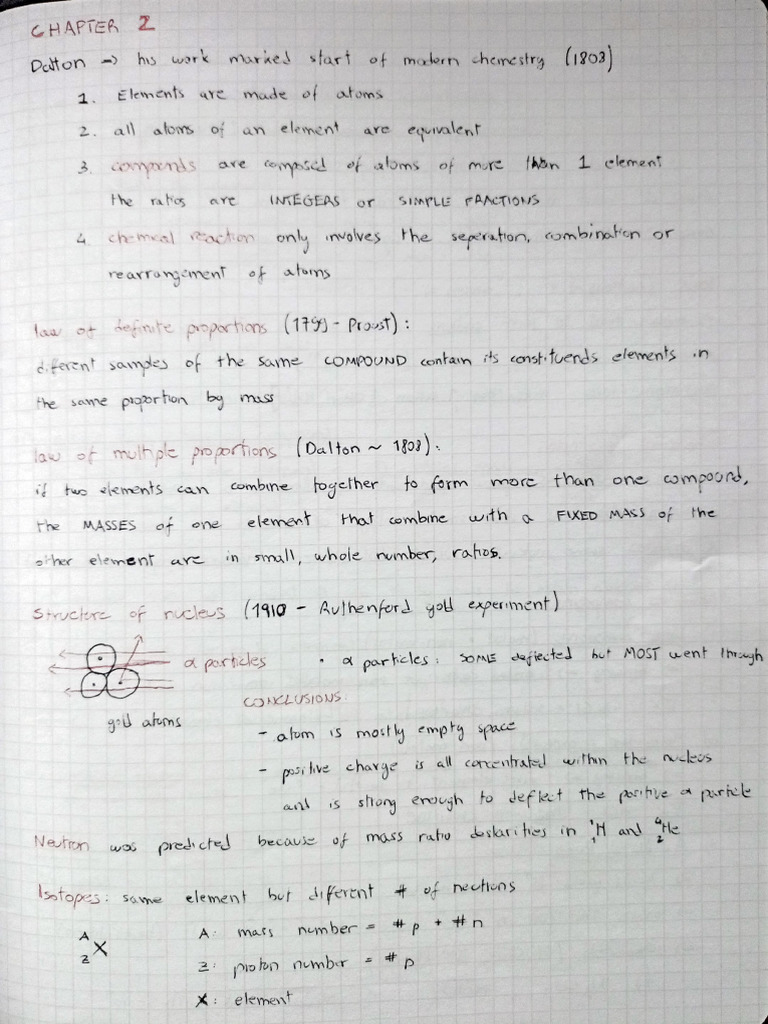 CHAPTER 2
Dalton → his work marked start of modern chemestry (1803)
1. Elements are made of atoms
2. all atoms of an element are equivalent
3. compounds are composed of atoms of more than 1 element
the ratios are INTEGERS or SIMPLE FRACTIONS
4. chemical reaction only involves the seperation, combination or
rearrangement of atoms
law of definite proportions (1799 - Proust):
diferent samples of the same COMPOUND contain its constituends elements in
the same proportion by mass
law of multiple proportions (Dalton ~ 1808):
if two elements can combine together to form more than one compound,
the MASSES of one element that combine with a FIXED MASS of the
other element are in small, whole number, ratios.
Structure of nucleus (1910 - Ruthenford gold experiment)
α particles
• α particles: SOME deflected but MOST went through
gold atoms
CONCLUSIONS:
- atom is mostly empty space
- positive charge is all concentrated within the nucleus
and is strong enough to deflect the positive α particle
Neutron was predicted because of mass ratio in ¹₁H and ⁴₂He
Isotopes: same element but different # of neutrons
ᴬ_Z X
A: mass number = #p + #n
Z: proton number = #p
X: element